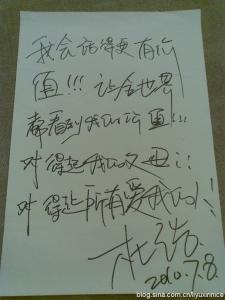 我会活得更有价
值!!! 让全世界
都看到我的价值!!!
对得起我的父母!!
对得起所有爱我的人!
杜
2010.7.8.
blog.sina.com.cn/liyuxinmice